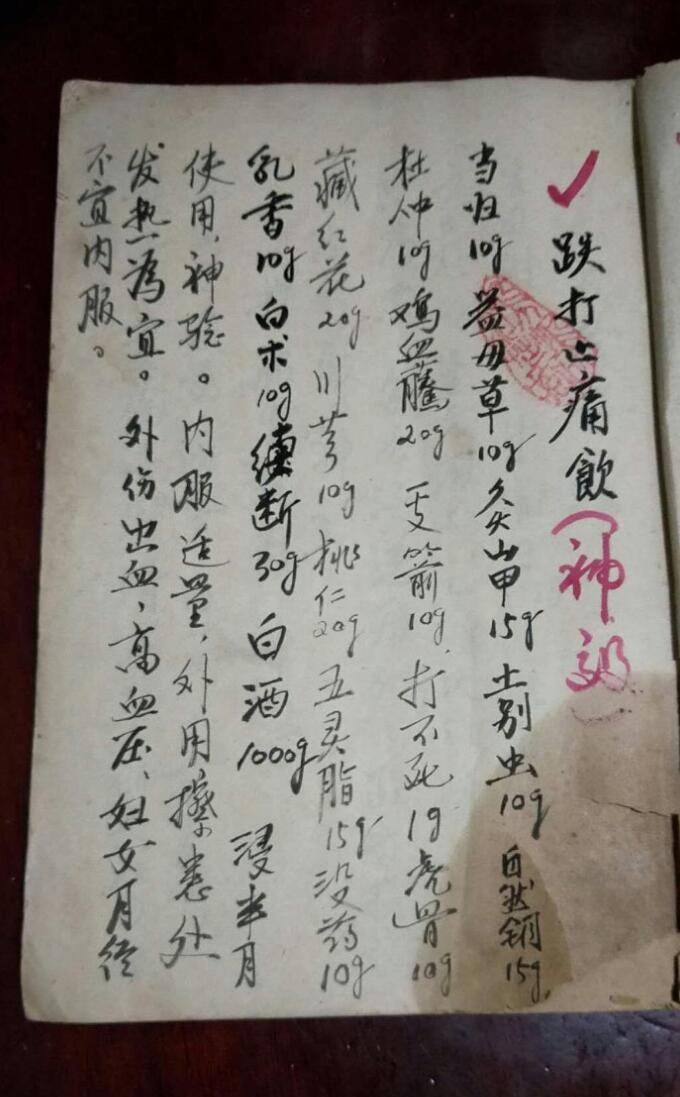 ✓跌打止痛飲（神效）
当归10g 益母草10g 灸山甲15g 土别虫10g 自然銅15g
杜仲10g 鸡血藤20g 支箭10g 打不死1g 虎骨10g
藏红花20g 川芎10g 桃仁20g 五灵脂15g 没药10g
乳香10g 白术10g 续断30g 白酒1000g 浸半月
使用，神验。内服适量，外用擦患处
发热为宜。外伤出血、高血压、妇女月经
不宜内服。